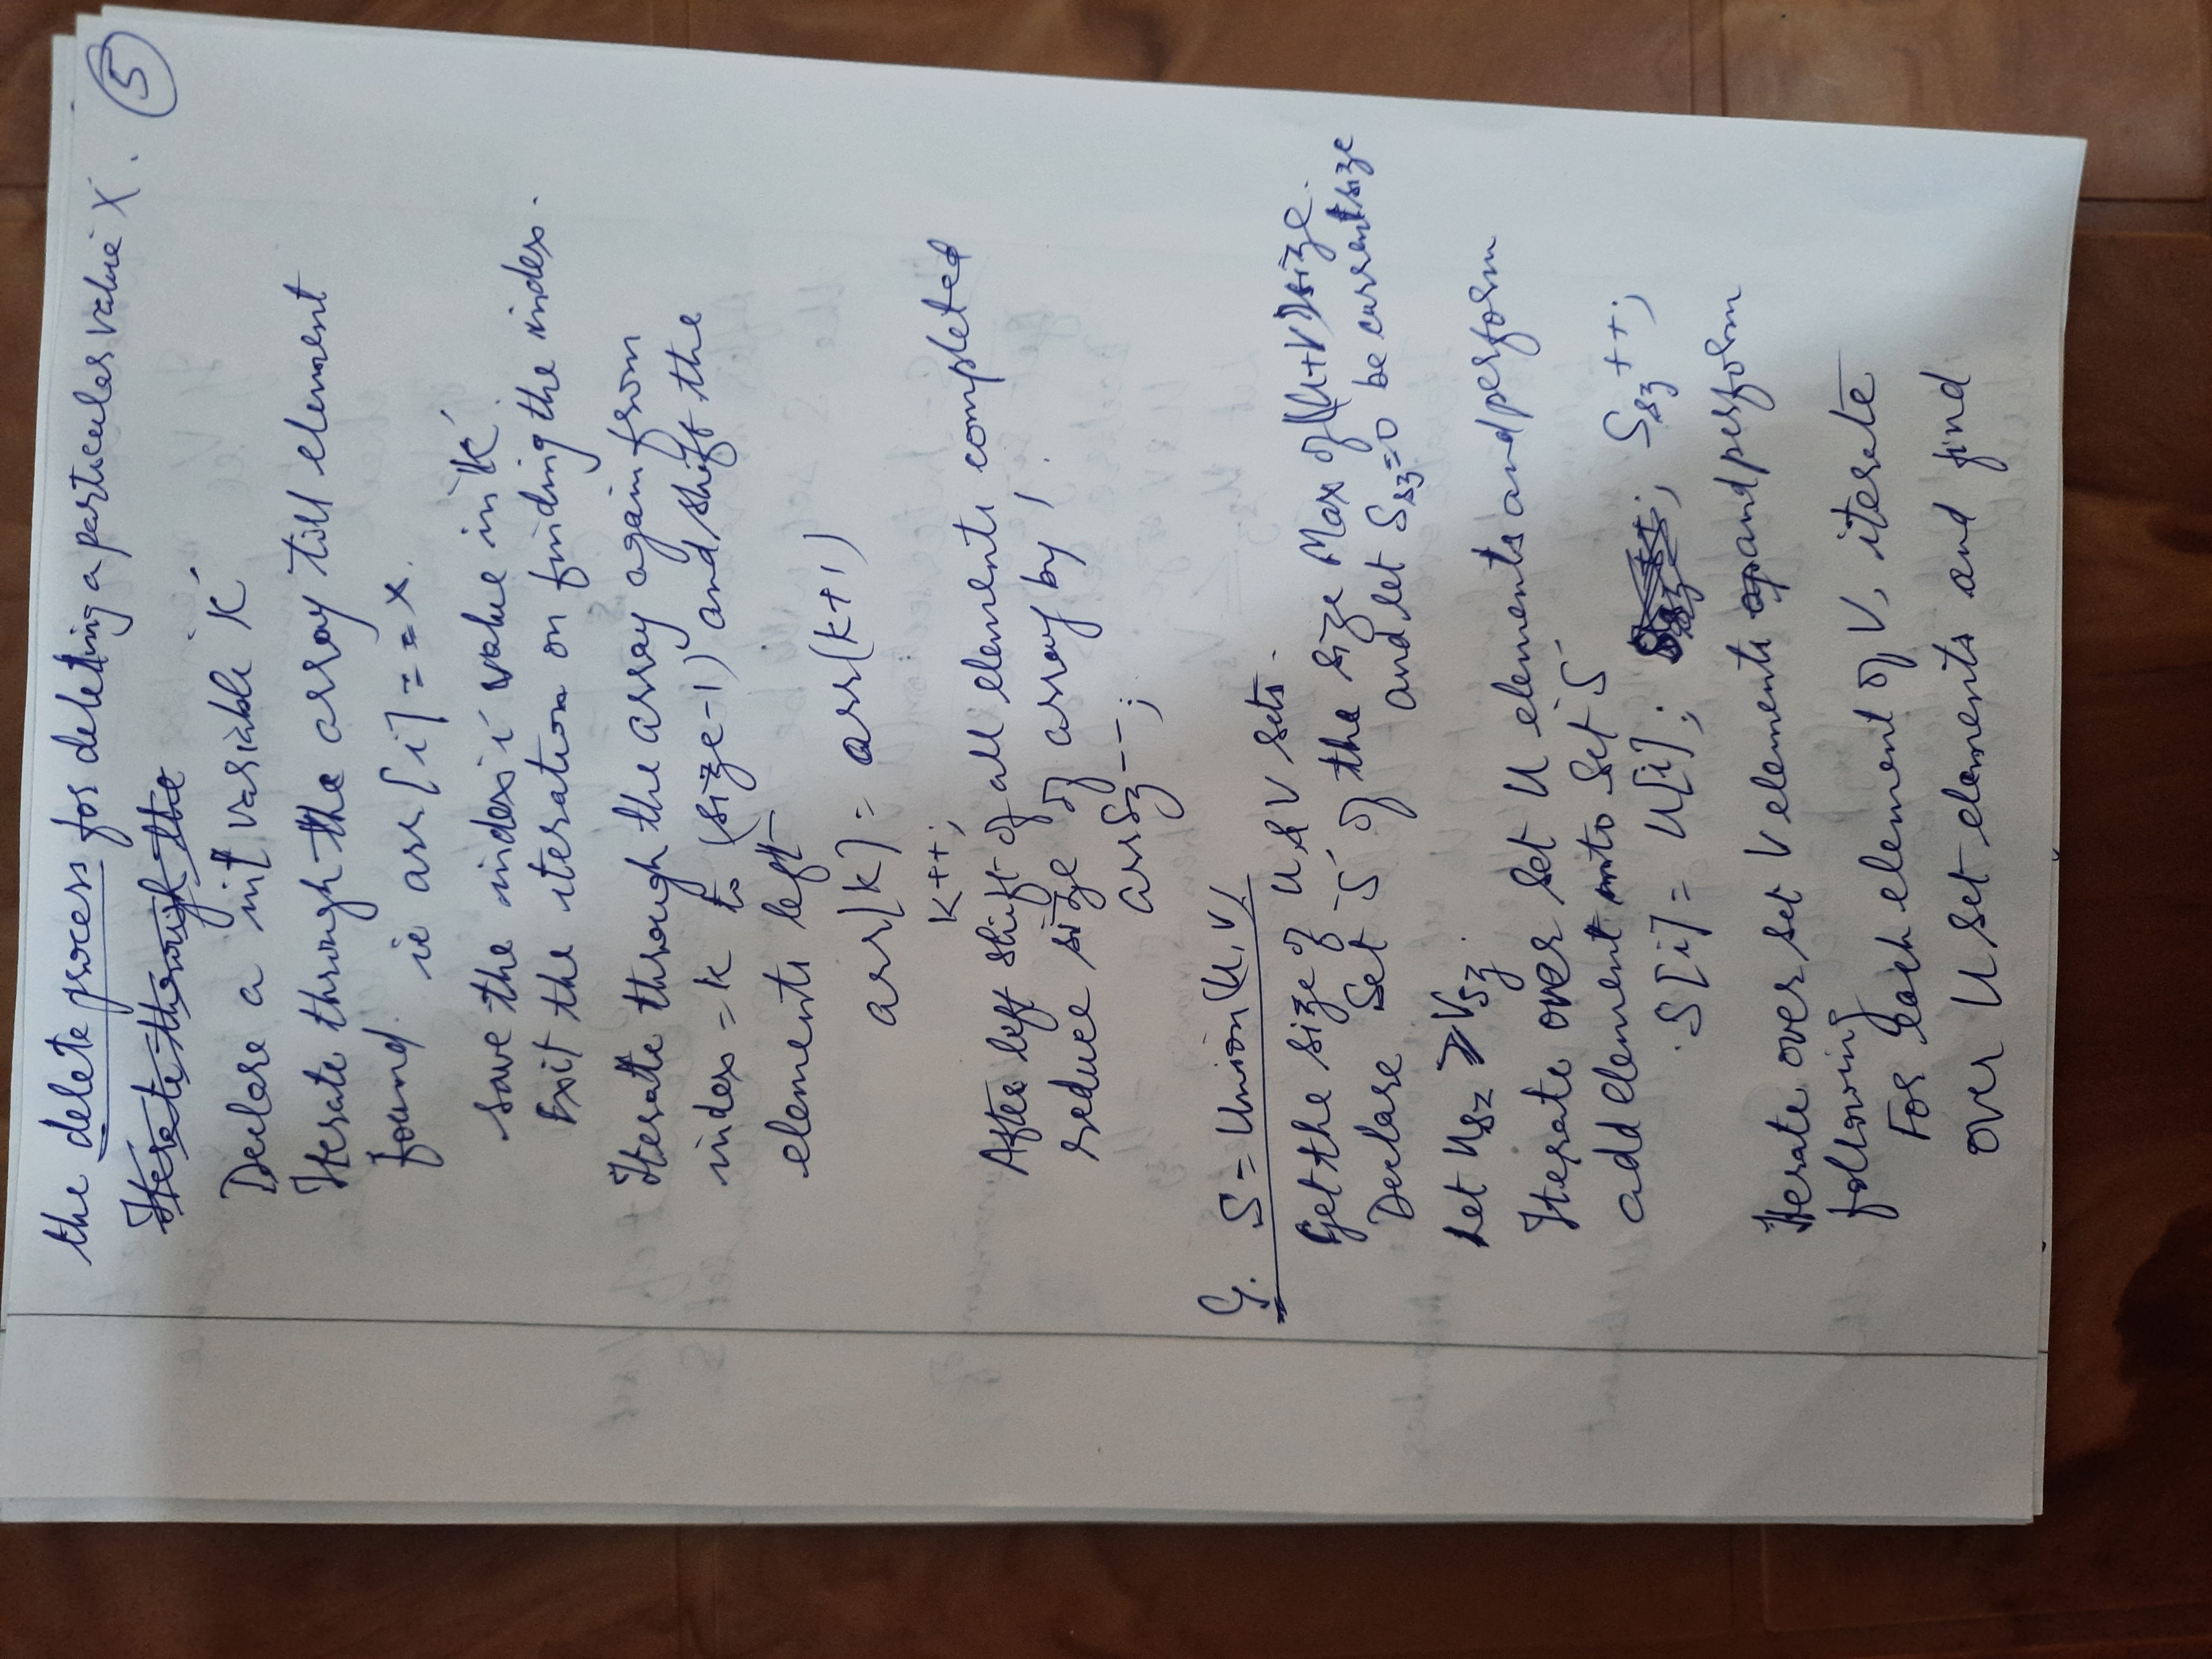 the delete process for deleting a particular value X.
5
Iterate through the
Declare a int variable 'K'
Iterate through the array till element
found. ie arr[i]==X.
save the index 'i' value in 'K'.
Exit the iteration on finding the index.
Iterate through the array again from
index = K to (size-1) and shift the
elements left
arr[K] = arr(K+1)
K++;
After left shift of all elements completed
reduce size of array by 1.
arrSz--;
G. S = Union(U, V)
Get the size of U & V sets.
Declare Set 'S' of the size Max of (U+V) size.
and let Ssz=0 be current size
Let Usz > Vsz.
Iterate over Set U elements and perform
add element into Set 'S'
S[i] = U[i]; ; Ssz++;
Iterate over set V elements and perform
following
For each element of V, iterate
over U set elements and find